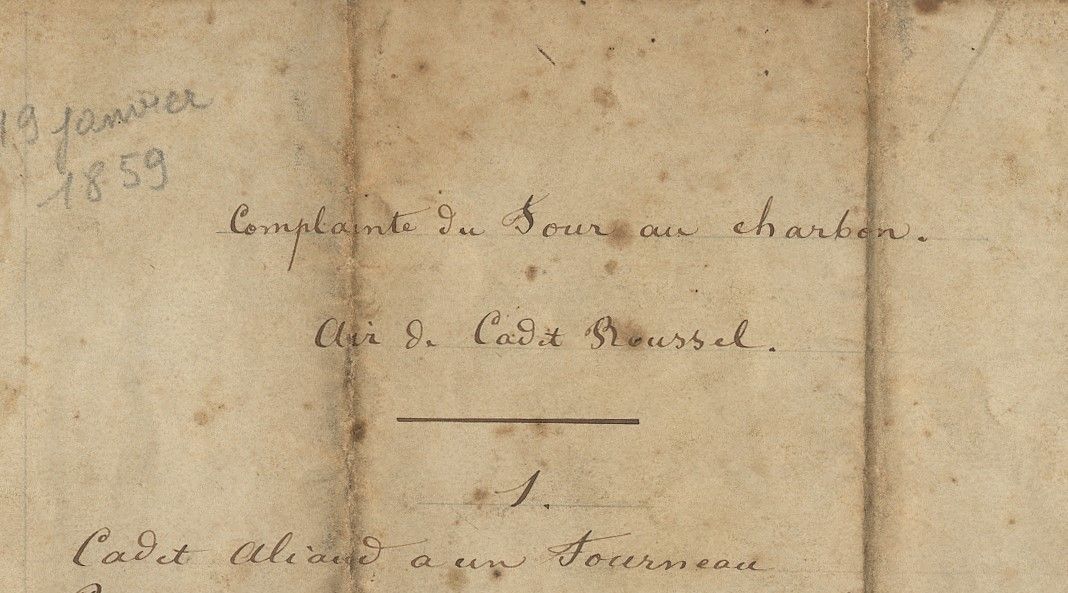 19 janvier
1859
Complainte du Four au charbon.
Air de Cadet Roussel.
1.
Cadet Aliaud a un Fourneau